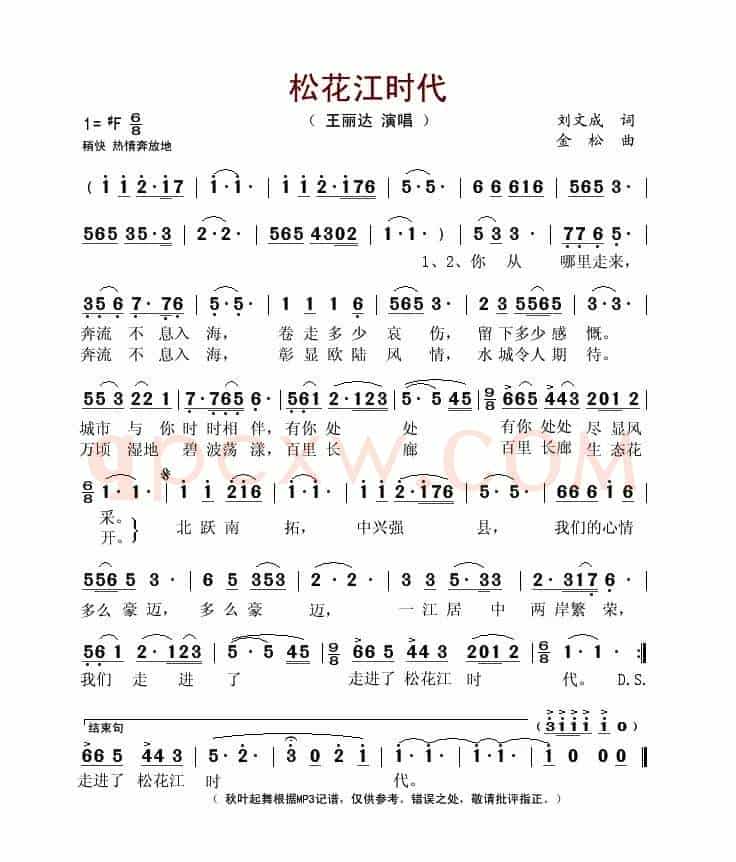 松花江时代
（ 王丽达 演唱 ）
刘文成 词
金 松 曲
1=♯F 6/8
稍快 热情奔放地
( i i 2·i7 | i·i· | i i 2·i76 | 5·5· | 6 6 616 | 565 3· |
565 35·3 | 2·2· | 565 4302 | 1·1· ) | 5 3 3· | 77 6 5· |
1、2、你 从 哪里走来，
35 6 7· 76 | 5·5· | 1 1 1 6 | 565 3· | 2 3 5565 | 3·3· |
奔流 不 息入 海， 卷 走 多 少 哀 伤， 留 下多少 感 慨。
奔流 不 息入 海， 彰 显 欧 陆 风 情， 水 城令人 期 待。
55 3 22 1 | 7·765 6· | 561 2·123 | 5·5 45 | 9/8 665 443 201 2 |
城市 与 你 时 时相 伴， 有你 处 处 有你 处处 尽 显风
万顷 湿地 碧 波荡 漾， 百里 长 廊 百里 长廊 生 态花
6/8 1·1· | i i 2i6 | i·i· | i i 2·i76 | 5·5· | 666 i 6 |
采。
开。
北 跃 南 拓， 中兴强 县， 我们的心情
556 5 3· | 6 5 353 | 2·2· | 3 5· 33 | 2·317 | 6· 5· |
多么 豪 迈， 多 么 豪 迈， 一 江 居 中 两 岸繁 荣，
56 1 2·123 | 5·5 45 | 9/8 66 5 44 3 201 2 | 6/8 1·1· :||
我们 走 进 了 走进了 松花江 时 代。 D.S.
结束句
( 3iii i i 0 )
66 5 44 3 | 5·2· | 3 0 2 i | i·i· | i·i· | i 0 0 0 ||
走进了 松花江 时 代。
（ 秋叶起舞根据MP3记谱，仅供参考。错误之处，敬请批评指正。）
qpcxw.COM